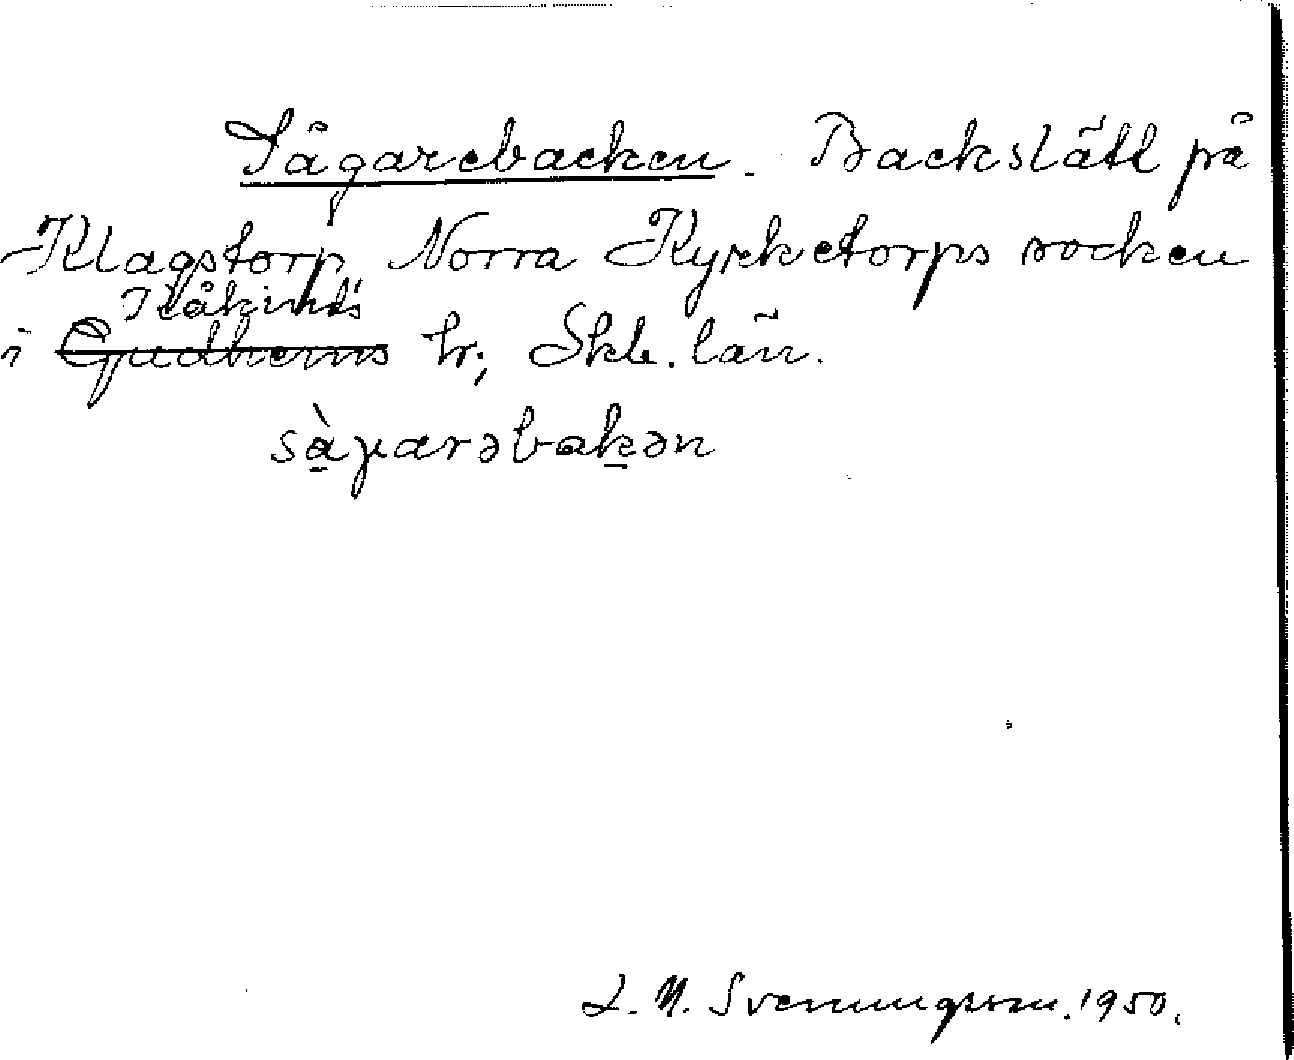 Sågarebacken. Backslätt på
Klagstorp, Norra Kyrketorps socken
Kåkinds
i Gudhems hr; Skb. län.
sàgarəbakən
L. N. Svenningsson. 1950.